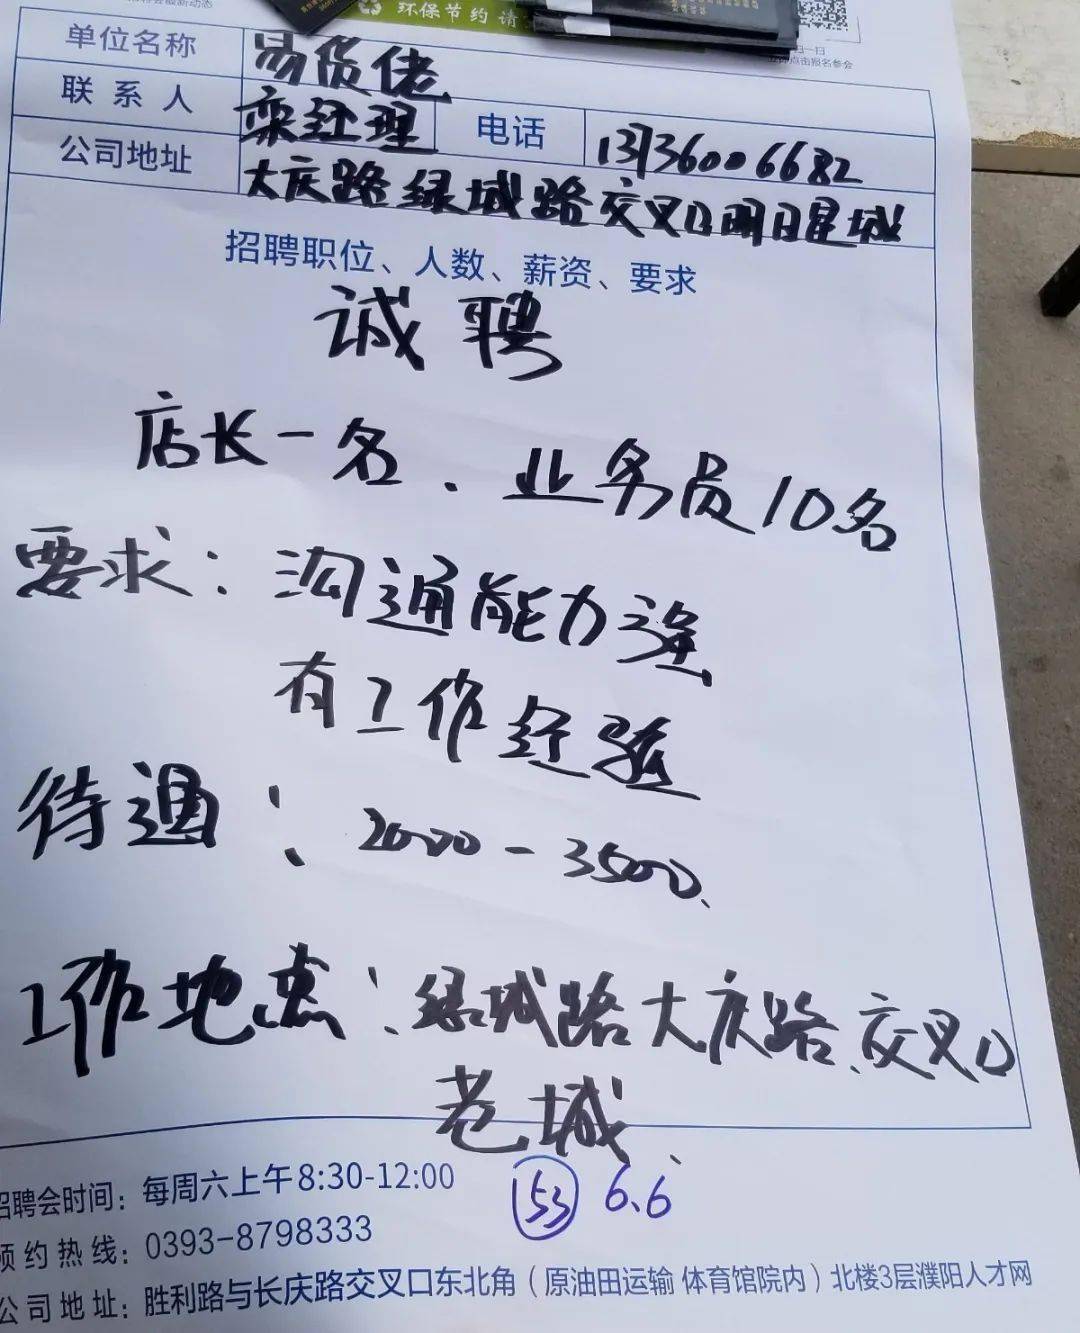 环保节约 请
单位名称 易货佬
联系人 栾经理 电话 13736006682
公司地址 大庆路绿城路交叉口明日星城
招聘职位、人数、薪资、要求
诚聘
店长一名、业务员10名
要求：沟通能力强
有工作经验
待遇：2000-3500、
工作地点：绿城路大庆路、交叉口
老城、
招聘会时间：每周六上午8:30-12:00
53 6.6
预约热线：0393-8798333
公司地址：胜利路与长庆路交叉口东北角（原油田运输 体育馆院内）北楼3层濮阳人才网